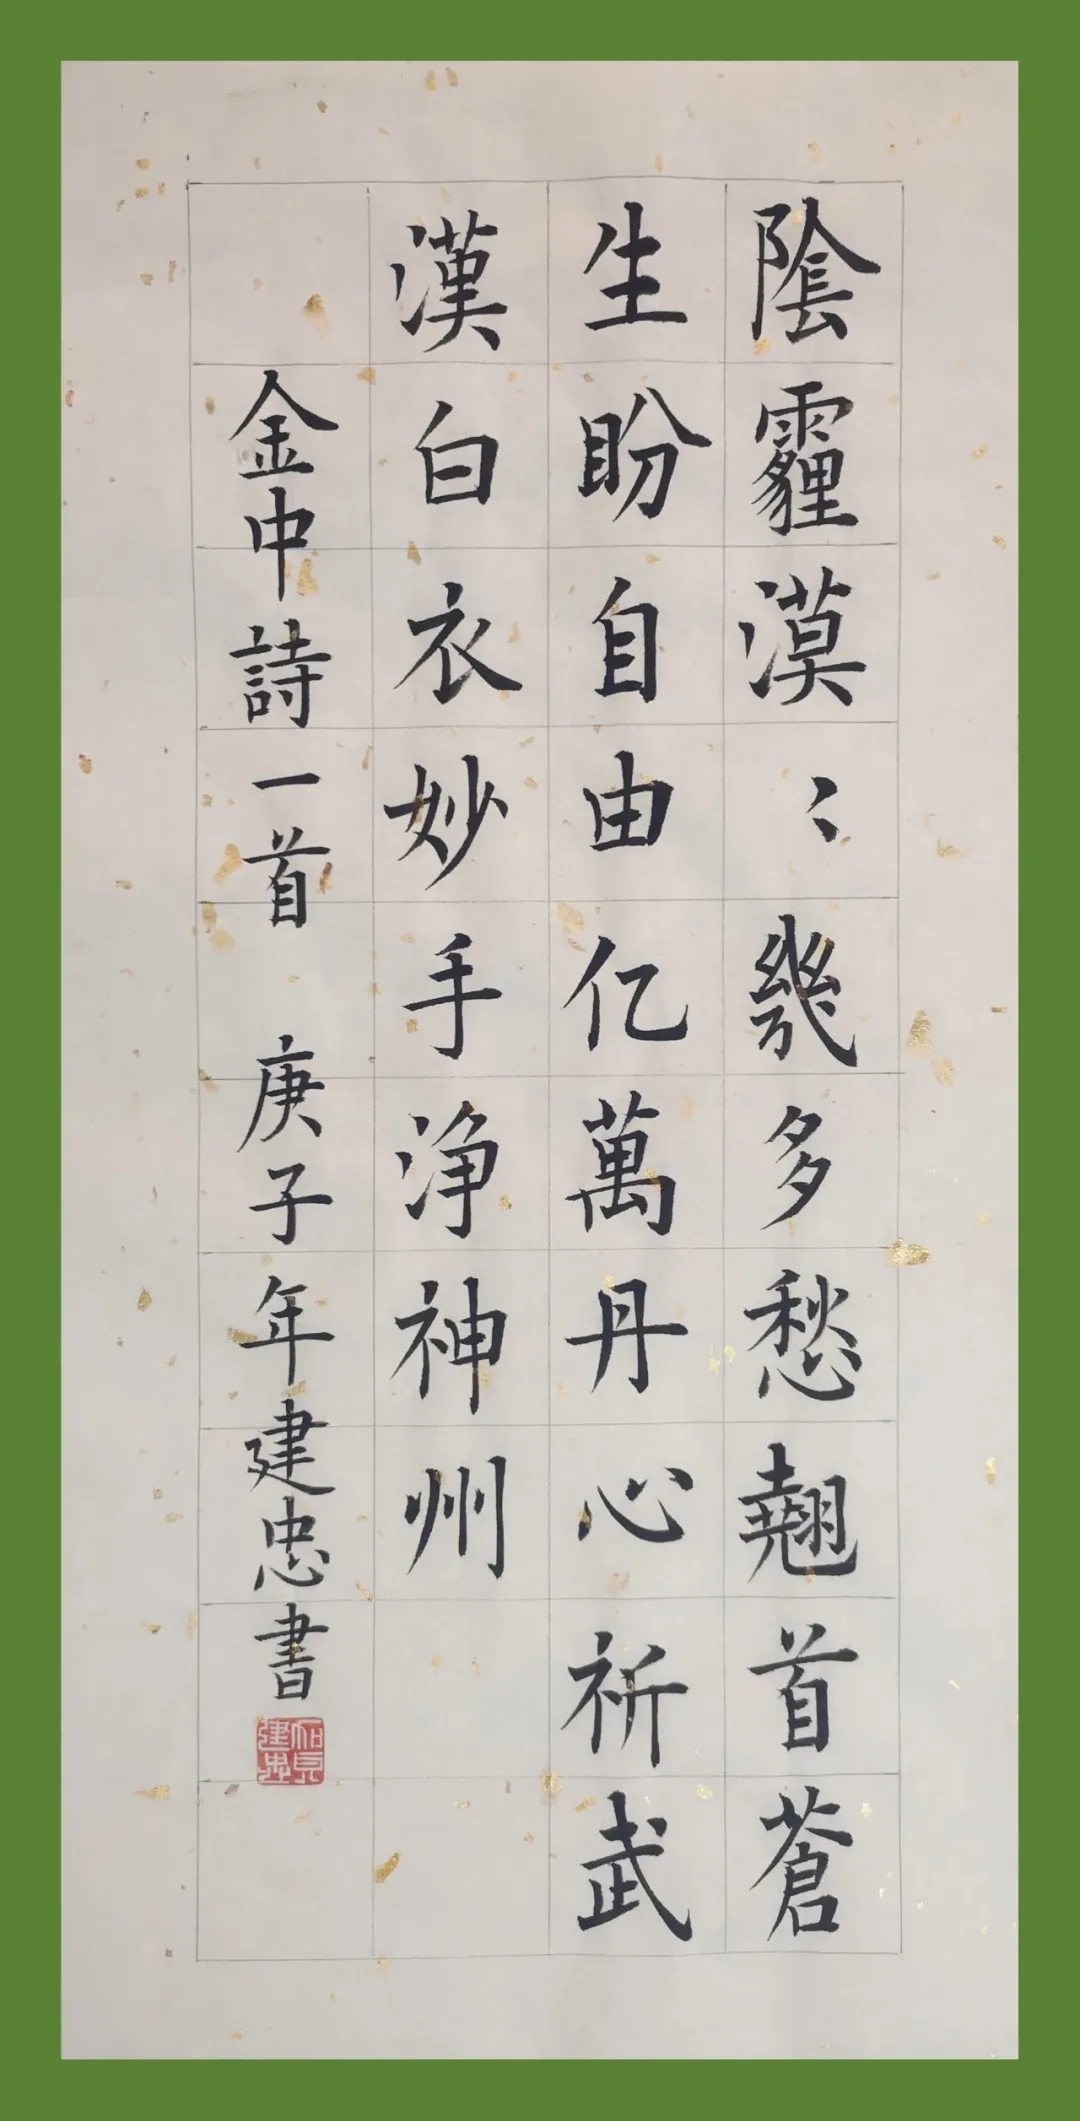 陰霾漠〻幾多愁翹首蒼
生盼自由亿萬丹心祈武
漢白衣妙手浄神州
金中詩一首 庚子年建忠書